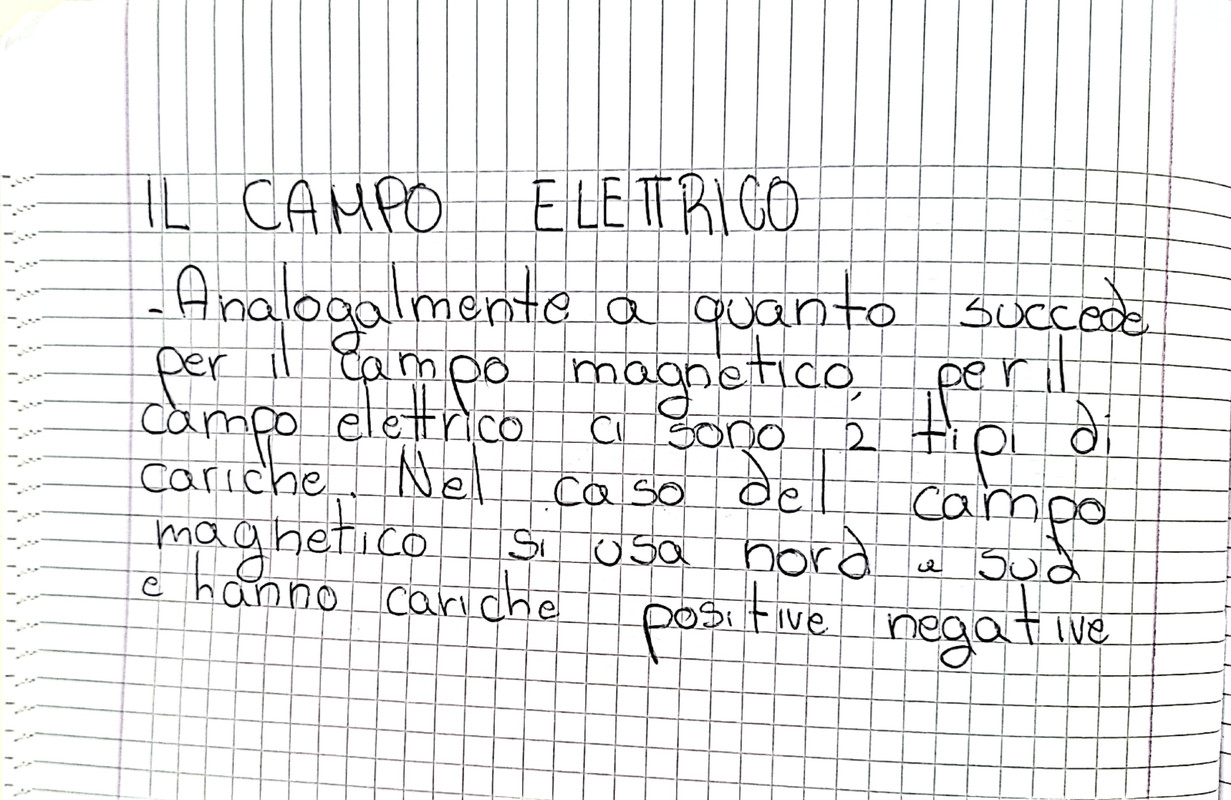 IL CAMPO ELETTRICO
- Analogalmente a quanto succede
per il campo magnetico, per il
campo elettrico ci sono 2 tipi di
cariche. Nel caso del campo
magnetico si usa nord e sud
e hanno cariche positive negative